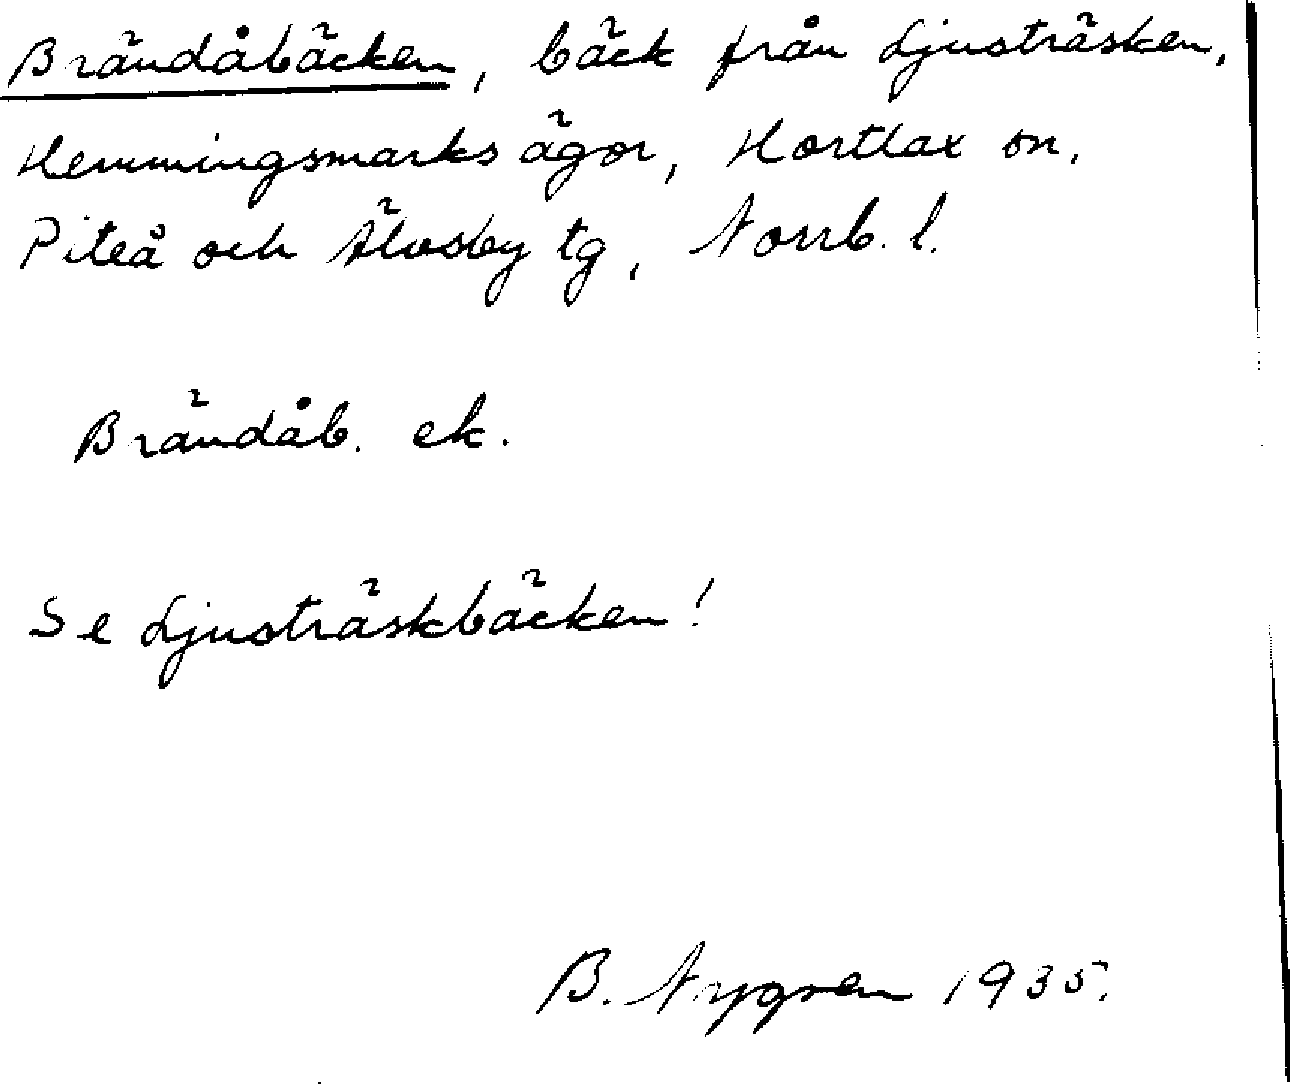 Brändåbäcken, bäck från Ljusträsken,
Hemmingsmarks ägor, Hortlax sn,
Piteå och Älvsby tg, Norrb. l.
Brändåb. ek.
Se Ljusträskbäcken!
B. Nygren 1935.